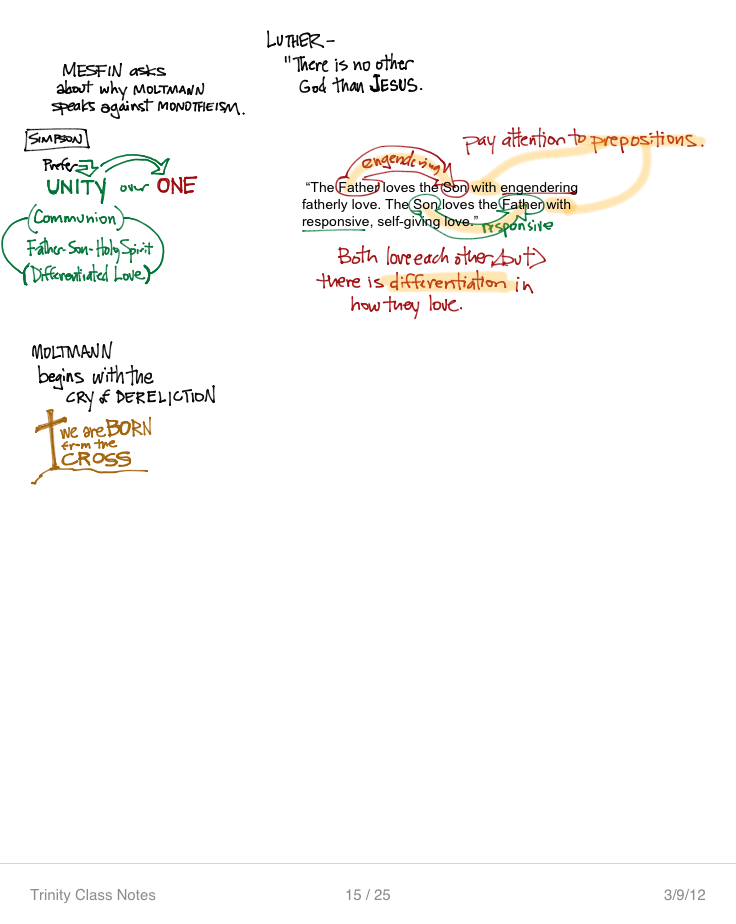 LUTHER -
"There is no other
God than JESUS.
MESFIN asks
about why MOLTMANN
speaks against MONOTHEISM.
SIMPSON
Prefer
UNITY over ONE
(Communion)
Father-Son-Holy Spirit
(Differentiated Love)
pay attention to prepositions.
engendering
“The Father loves the Son with engendering
fatherly love. The Son loves the Father with
responsive, self-giving love.”
responsive
Both love each other, <but>
there is differentiation in
how they love.
MOLTMANN
begins with the
CRY of DERELICTION
we are BORN
from the
CROSS
Trinity Class Notes
15 / 25
3/9/12